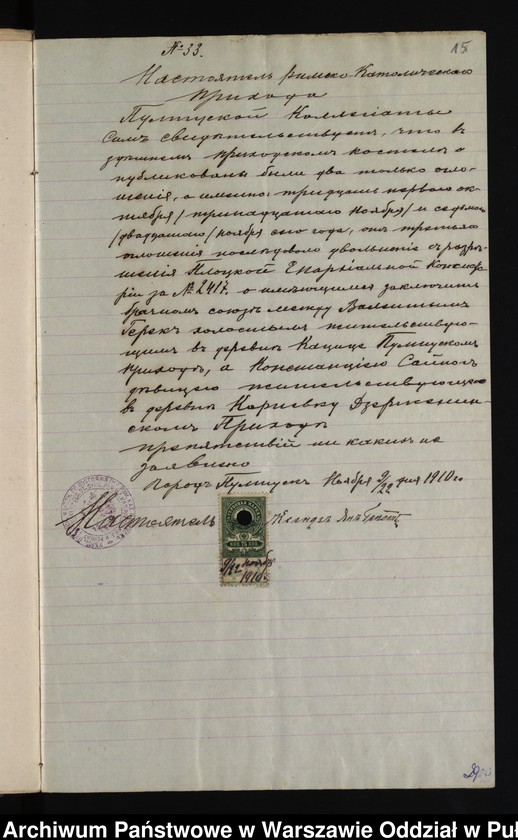 № 33.
15
Настоятель Римско-Католическаго
Прихода
Пултуской Коллегіаты
Симъ свидѣтельствуетъ, что въ
здѣшнемъ приходскомъ костелѣ о
публикованы были два только огло-
шенія, а именно: тридцать перваго ок-
тября /тринадцатаго Ноября/ и седьмаго
/двадцатаго/ ноября сего года, отъ третьяго
оглошенія послѣдовало увольненіе съ разрѣ-
шенія Плоцкой Епархіальной Консисто-
ріи за № 2417. о имѣющимся заключить
брачномъ союзѣ между Валентымъ
Герекъ холостымъ жительствую-
щимъ въ деревнѣ Кацице Пултускомъ
приходѣ, а Констанціею
дѣвицею жительствующею
въ деревнѣ Дзержении-
скомъ Приходѣ
препятствій ни какихъ не
заявлено
Городъ Пултускъ Ноября 9/22 дня 1910 го
Настоятель Ксендзъ
9/22 ноября
1910 г.
Archiwum Państwowe w Warszawie Oddział w Puł